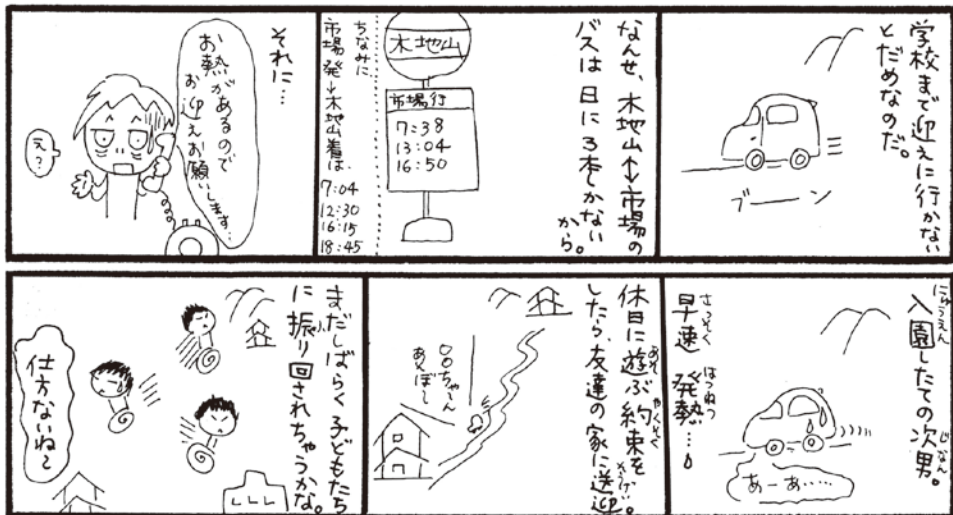 学校まで迎えに行かない
とだめなのだ。
ブーン
なんせ、木地山↔市場の
バスは日に3本しかない
から。
木地山
市場行
7:38
13:04
16:50
ちなみに
市場発→木地山着は、
7:04
12:30
16:15
18:45
それに…
お熱があるので
お迎えお願いします…
え?
にゅうえん
入園したての次男。
じなん
さっそく はつねつ
早速 発熱…
あーあ……
休日に遊ぶ約束を
あそ やくそく
したら、友達の家に送迎。
そうげい
○○ちゃーん
あそぼー
まだしばらく子どもたち
に振り回されちゃうかな。
ふ
仕方ないね〜